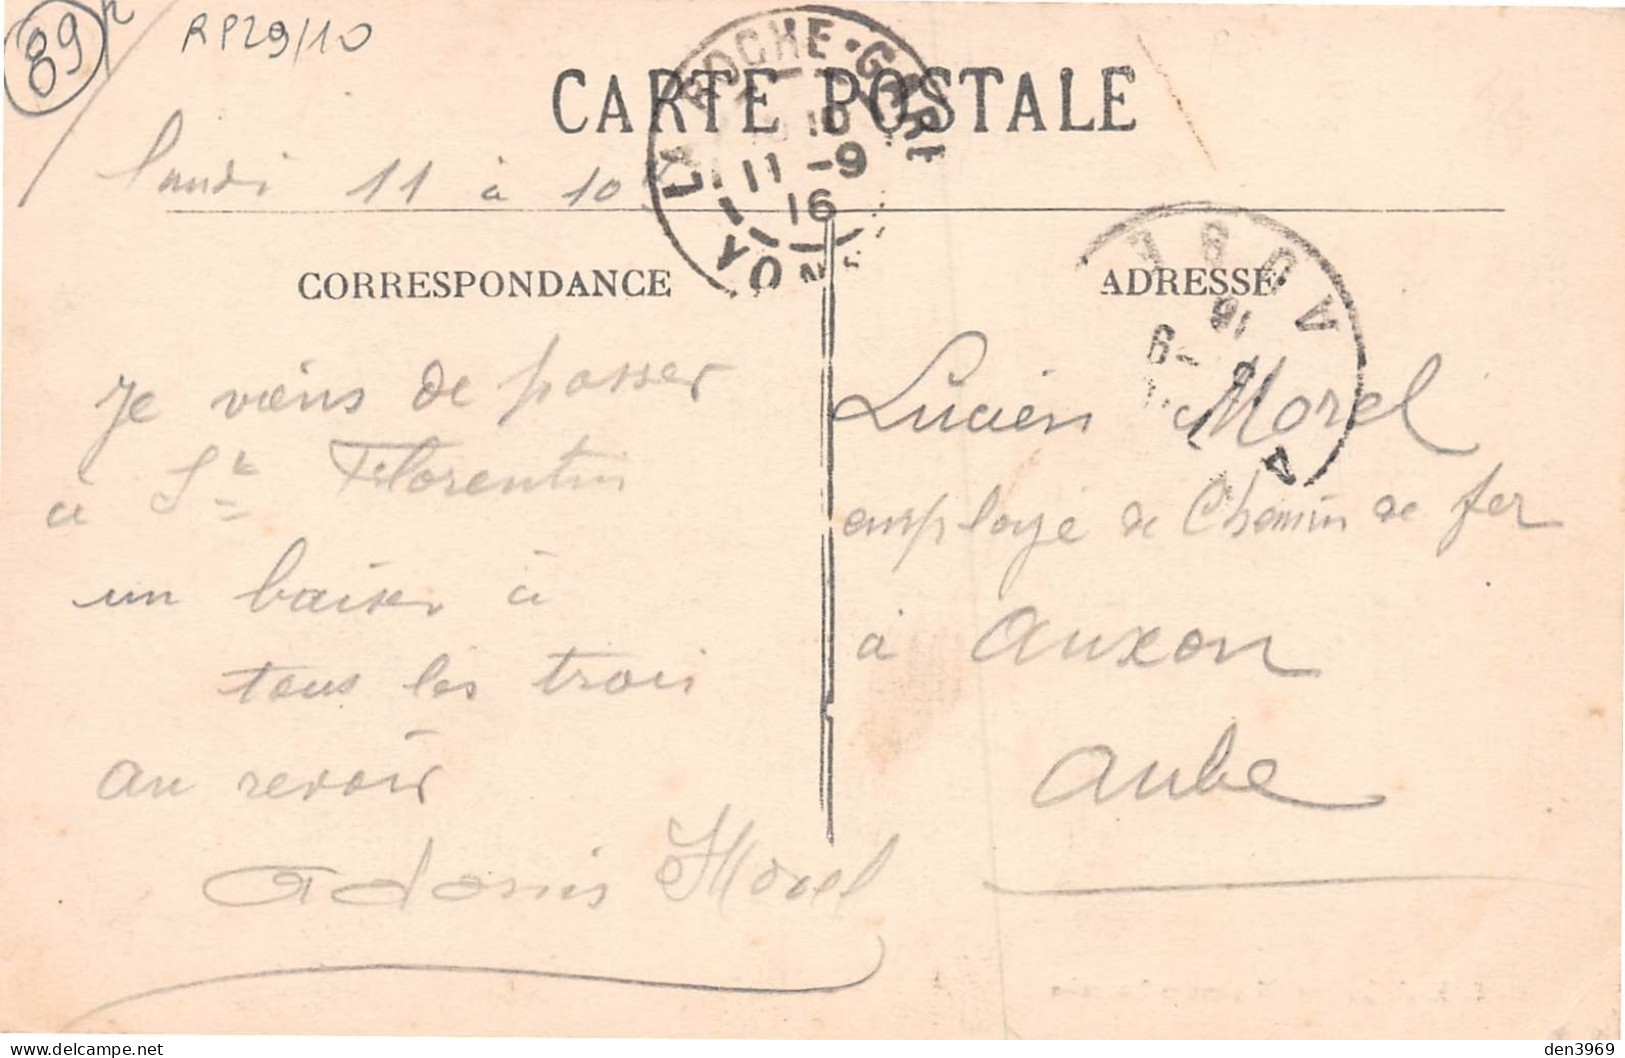 89
RP29/10
CARTE POSTALE
LA ROCHE-GARE
11 -9
16
YONNE
lundi 11 à 10
CORRESPONDANCE
Je viens de passer
à St Florentin
un baiser à
tous les trois
au revoir
Adonis Morel
ADRESSE
AUBE
-9
16
Lucien Morel
employé de Chemin de fer
à Auxon
Aube
den3969